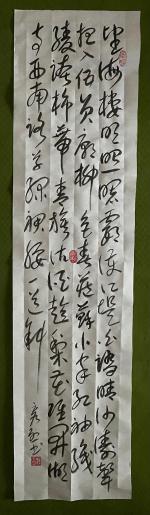 望海楼明照曙霞护江堤白踏晴沙涛声
夜入伍员庙柳色春藏苏小家红袖织
绫夸柿蒂青旗沽酒趁梨花谁开湖
寺西南路草绿裙腰一道斜